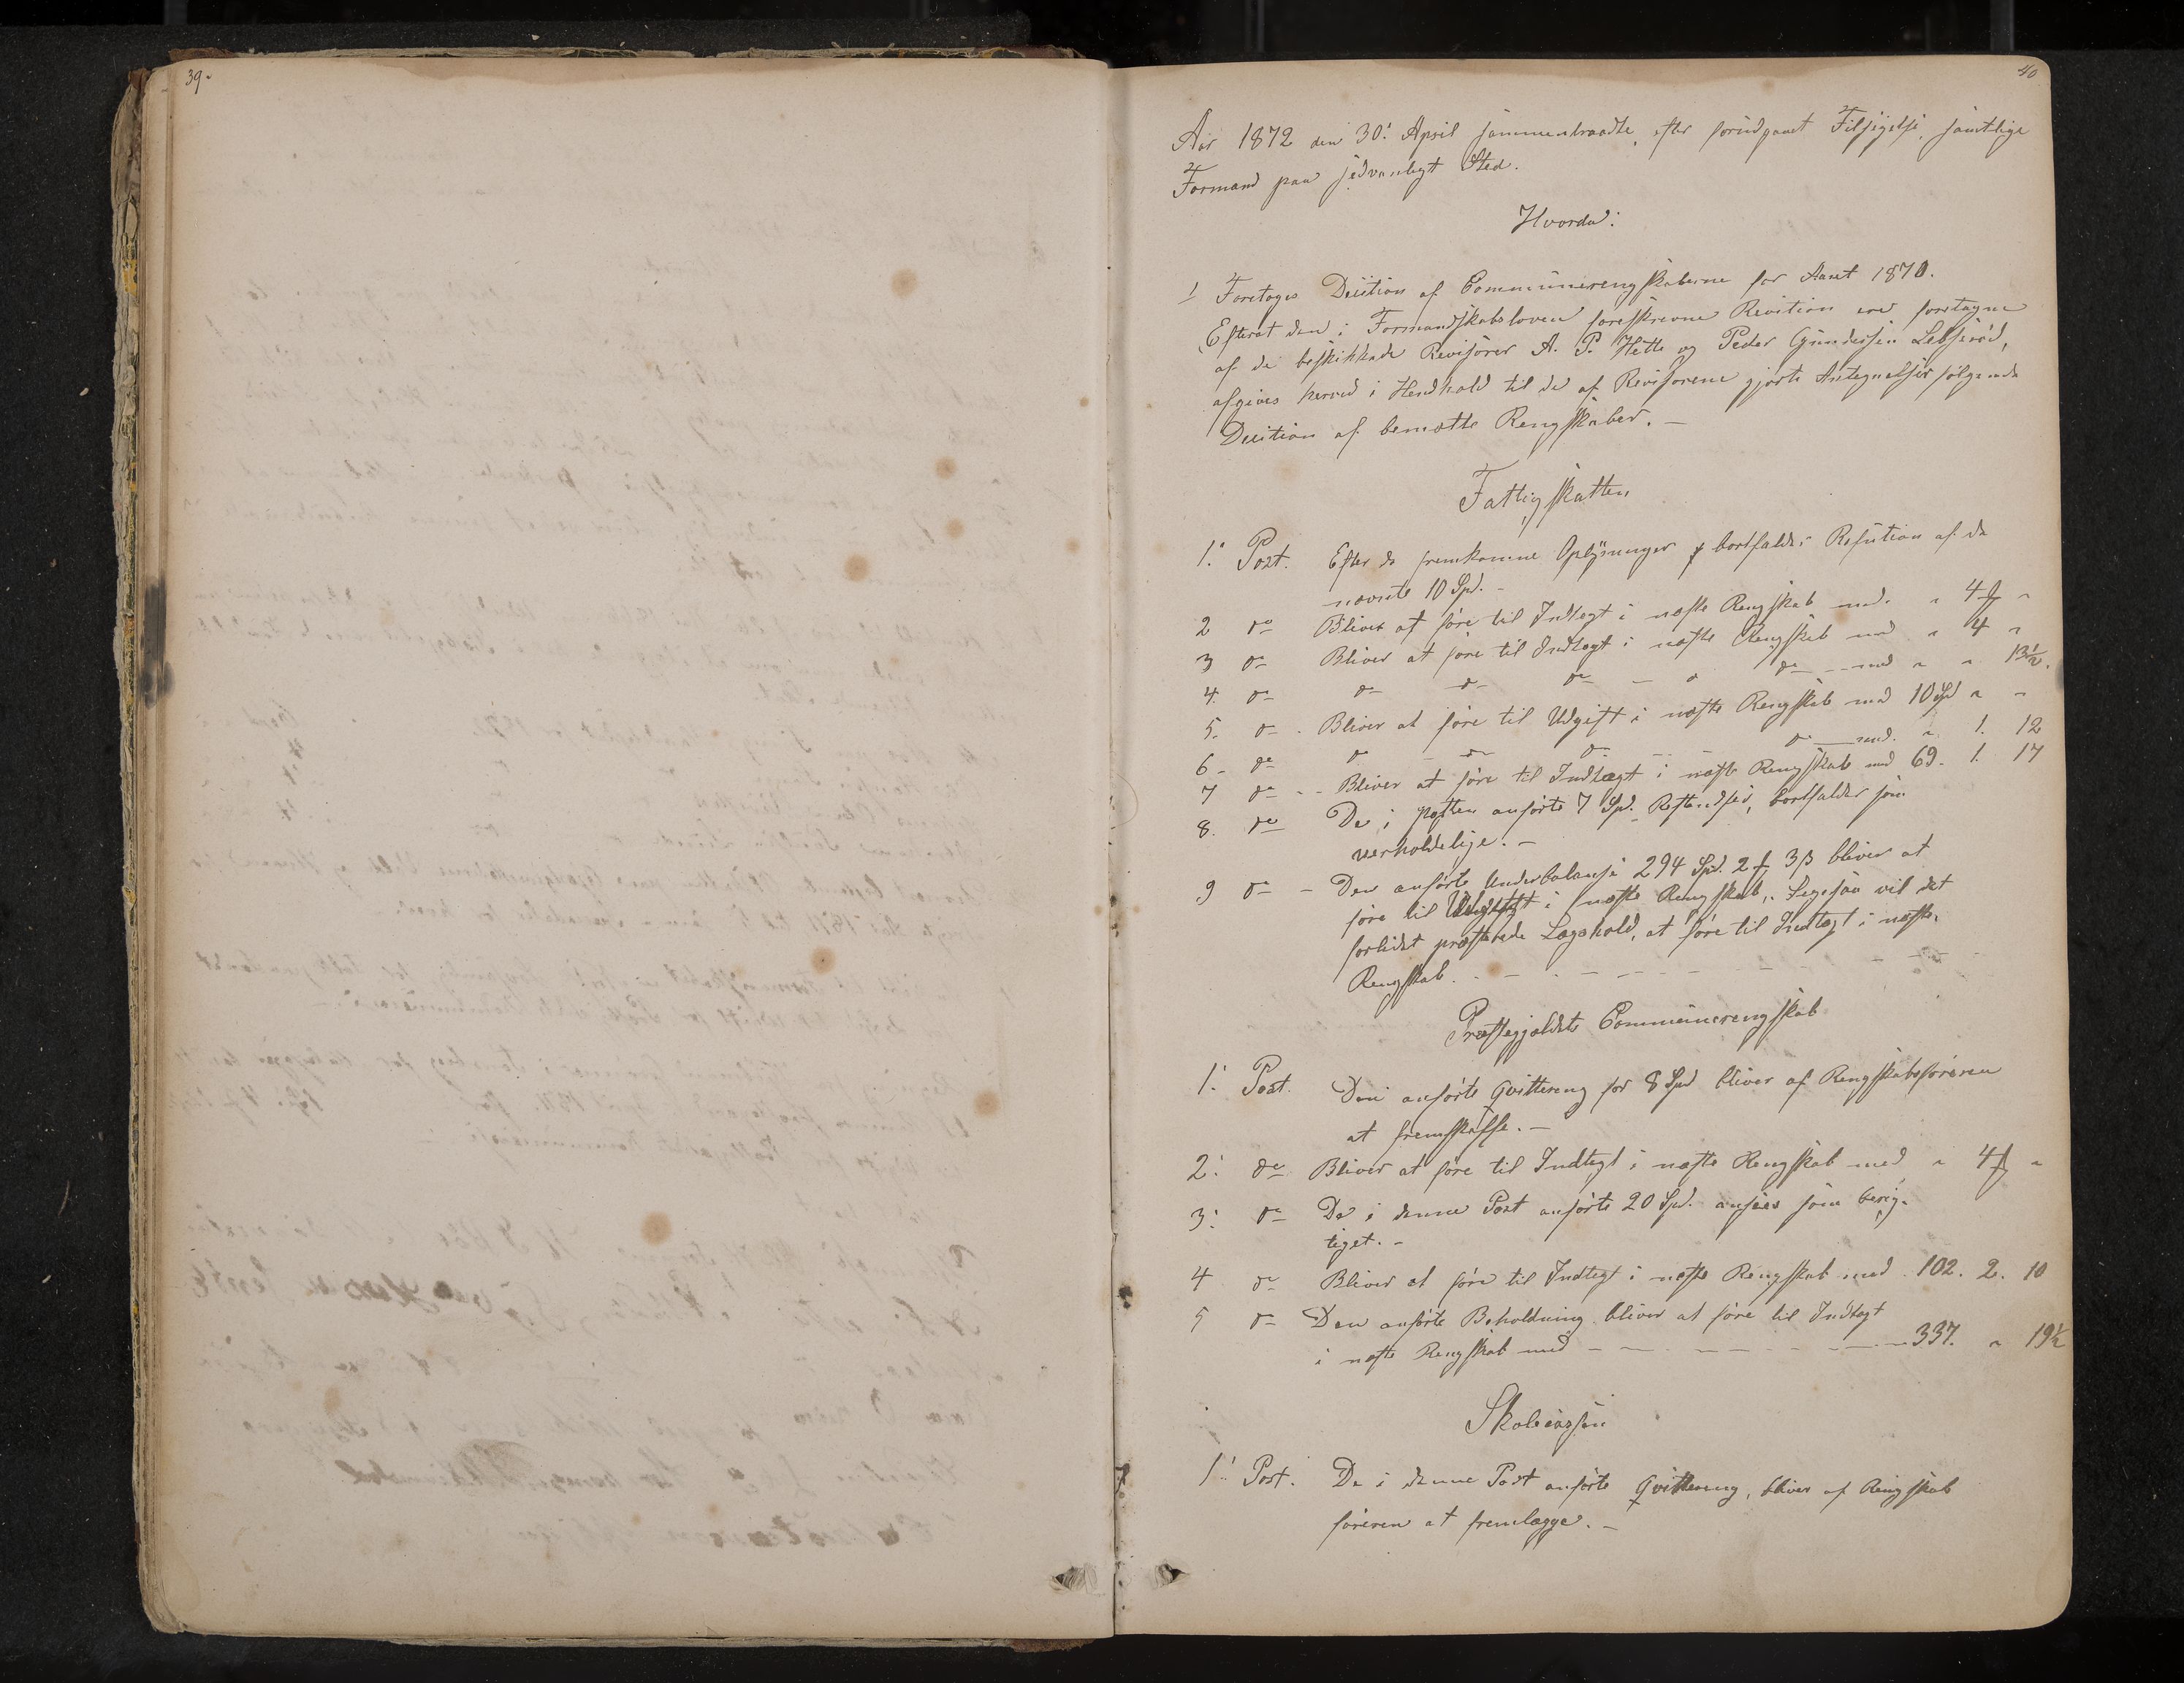 39.
40
Aar 1872 den 30: April sammentraadte, efter forudgaaet Tilsigelse, samtlige
Formænd paa sedvanligt Sted.
Hvorda:
1 Foretoges Decition af Communerengskaberne for Aaret 1870.
Efterat den i Formandskabsloven foreskrevne Revition var foretagne
af de beskikkede Revisorer A. P. Hette og Peder Gundersen Lebserød,
afgives herved i Hendhold til de af Revisorene gjorte Antegnelser følgende
Decition af bemældte Rengskaber. -
Fattigskatten
1: Post. Efter de fremkomne Oplysninger bortfalder Refution af de
nævnte 10 Spd. -
2 do Bliver at føre til Indtægt i næste Rengskab med. " 4 ƒ "
3 do Bliver at føre til Indtægt i næste Rengskab med " 4 "
4. do do do do - do - med " " 13½.
5. do . Bliver at føre til Udgift i næste Rengskab med 10 Spd " "
6 - do do do do do - med. " 1. 12
7 do - - Bliver at føre til Indtægt i næste Rengskab med 69. 1. 17
8. do De i posten anførte 7 Spd. Restandser, bortfalder som
uerholdelige. -
9 do - Den anførte Underbalanse 294 Spd. 2 ƒ 3 ß bliver at
føre til i næste Rengskab. Ligesaa vil det
forlidet præsterede Lægshold, at føre til Indtægt i næste
Rengskab. - - - - - -
Præstegjældets Communerengskab
1: Post. Den anførte Qvittereng for 8 Spd bliver af Rengskabsføreren
at fremskaffe. -
2: do Bliver at føre til Indtægt i næste Rengskab med " 4 ƒ "
3: do De i denne Post anførte 20 Spd. ansees som berig-
tiget. -
4 do Bliver at føre til Indtægt i næste Rengskab med 102. 2. 10
5 do Den anførte Beholdning bliver at føre til Indtægt
i næste Rengskab med - - - - - - 337. " 19½
Skolecassen
1: Post. De i denne Post anførte Qvittereng, bliver af Rengskab
føreren at fremlægge. -